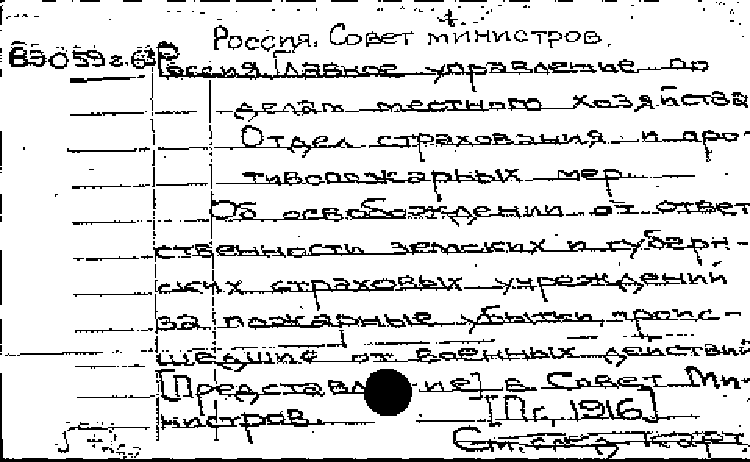 Россия. Совет министров.
Россия. Главное управление по
делам местного хозяйства
Отдел страхования и про-
тивопожарных мер.
Об освобождении от ответ
ственности земских и губерн-
ских страховых учреждений
за пожарные убытки, проис-
шедшие от военных действий
[Представление] в Совет Ми-
нистров. [Пг., 1916]
См. след. карт.